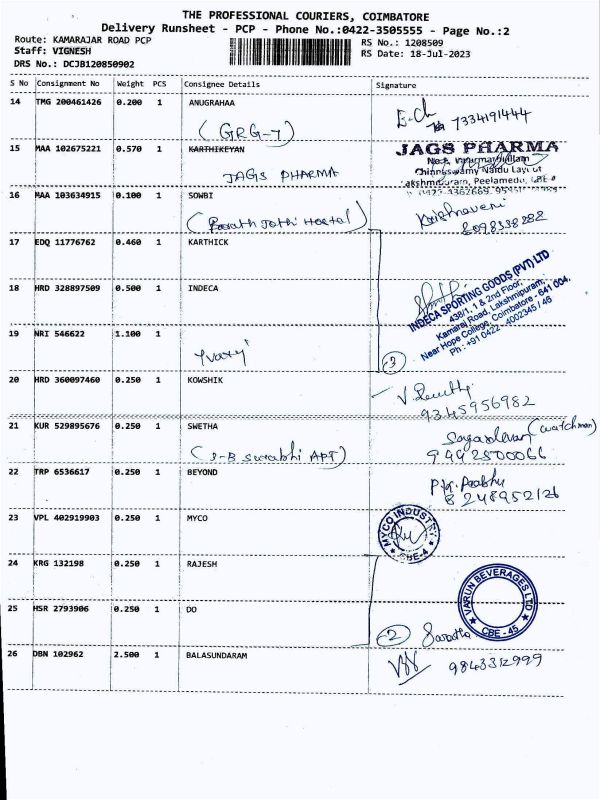 THE PROFESSIONAL COURIERS, COIMBATORE
Delivery Runsheet - PCP - Phone No.:0422-3505555 - Page No.:2
Route: KAMARAJAR ROAD PCP
RS No.: 1208509
Staff: VIGNESH
RS Date: 18-Jul-2023
DRS No.: DCJB120850902
S No Consignment No Weight PCS Consignee Details Signature
14 TMG 200461426 0.200 1 ANUGRAHAA
(GRG-7)
7334191444
15 MAA 102675221 0.570 1 KARTHIKEYAN
JAGS PHARMA
JAGS PHARMA
Chinnuswamy Naidu Layout
Lakshmipuram, Peelamedu, CBE-4
16 MAA 103634915 0.100 1 SOWBI
(Barath Jothi Hostal)
Krishnaveni
8098338282
17 EDQ 11776762 0.460 1 KARTHICK
18 HRD 328897509 0.500 1 INDECA
INDECA SPORTING GOODS (PVT) LTD
438/1, 1 & 2nd Floor,
Kamaraj Road, Lakshmipuram,
Near Hope College, Coimbatore - 641 004.
Ph : +91 0422 - 4002345 / 46
19 NRI 546622 1.100 1
-3
20 HRD 360097460 0.250 1 KOWSHIK
9345956982
21 KUR 529895676 0.250 1 SWETHA
(3-B Surabhi APT)
(watchman)
9442500066
22 TRP 6536617 0.250 1 BEYOND
P.K. Prabhu
8248952126
23 VPL 402919903 0.250 1 MYCO
MYCO INDUSTRY
CBE-4
24 KRG 132198 0.250 1 RAJESH
VARUN BEVERAGES LTD
CBE - 45
25 HSR 2793906 0.250 1 DO
-2
26 DBN 102962 2.500 1 BALASUNDARAM
9843312999